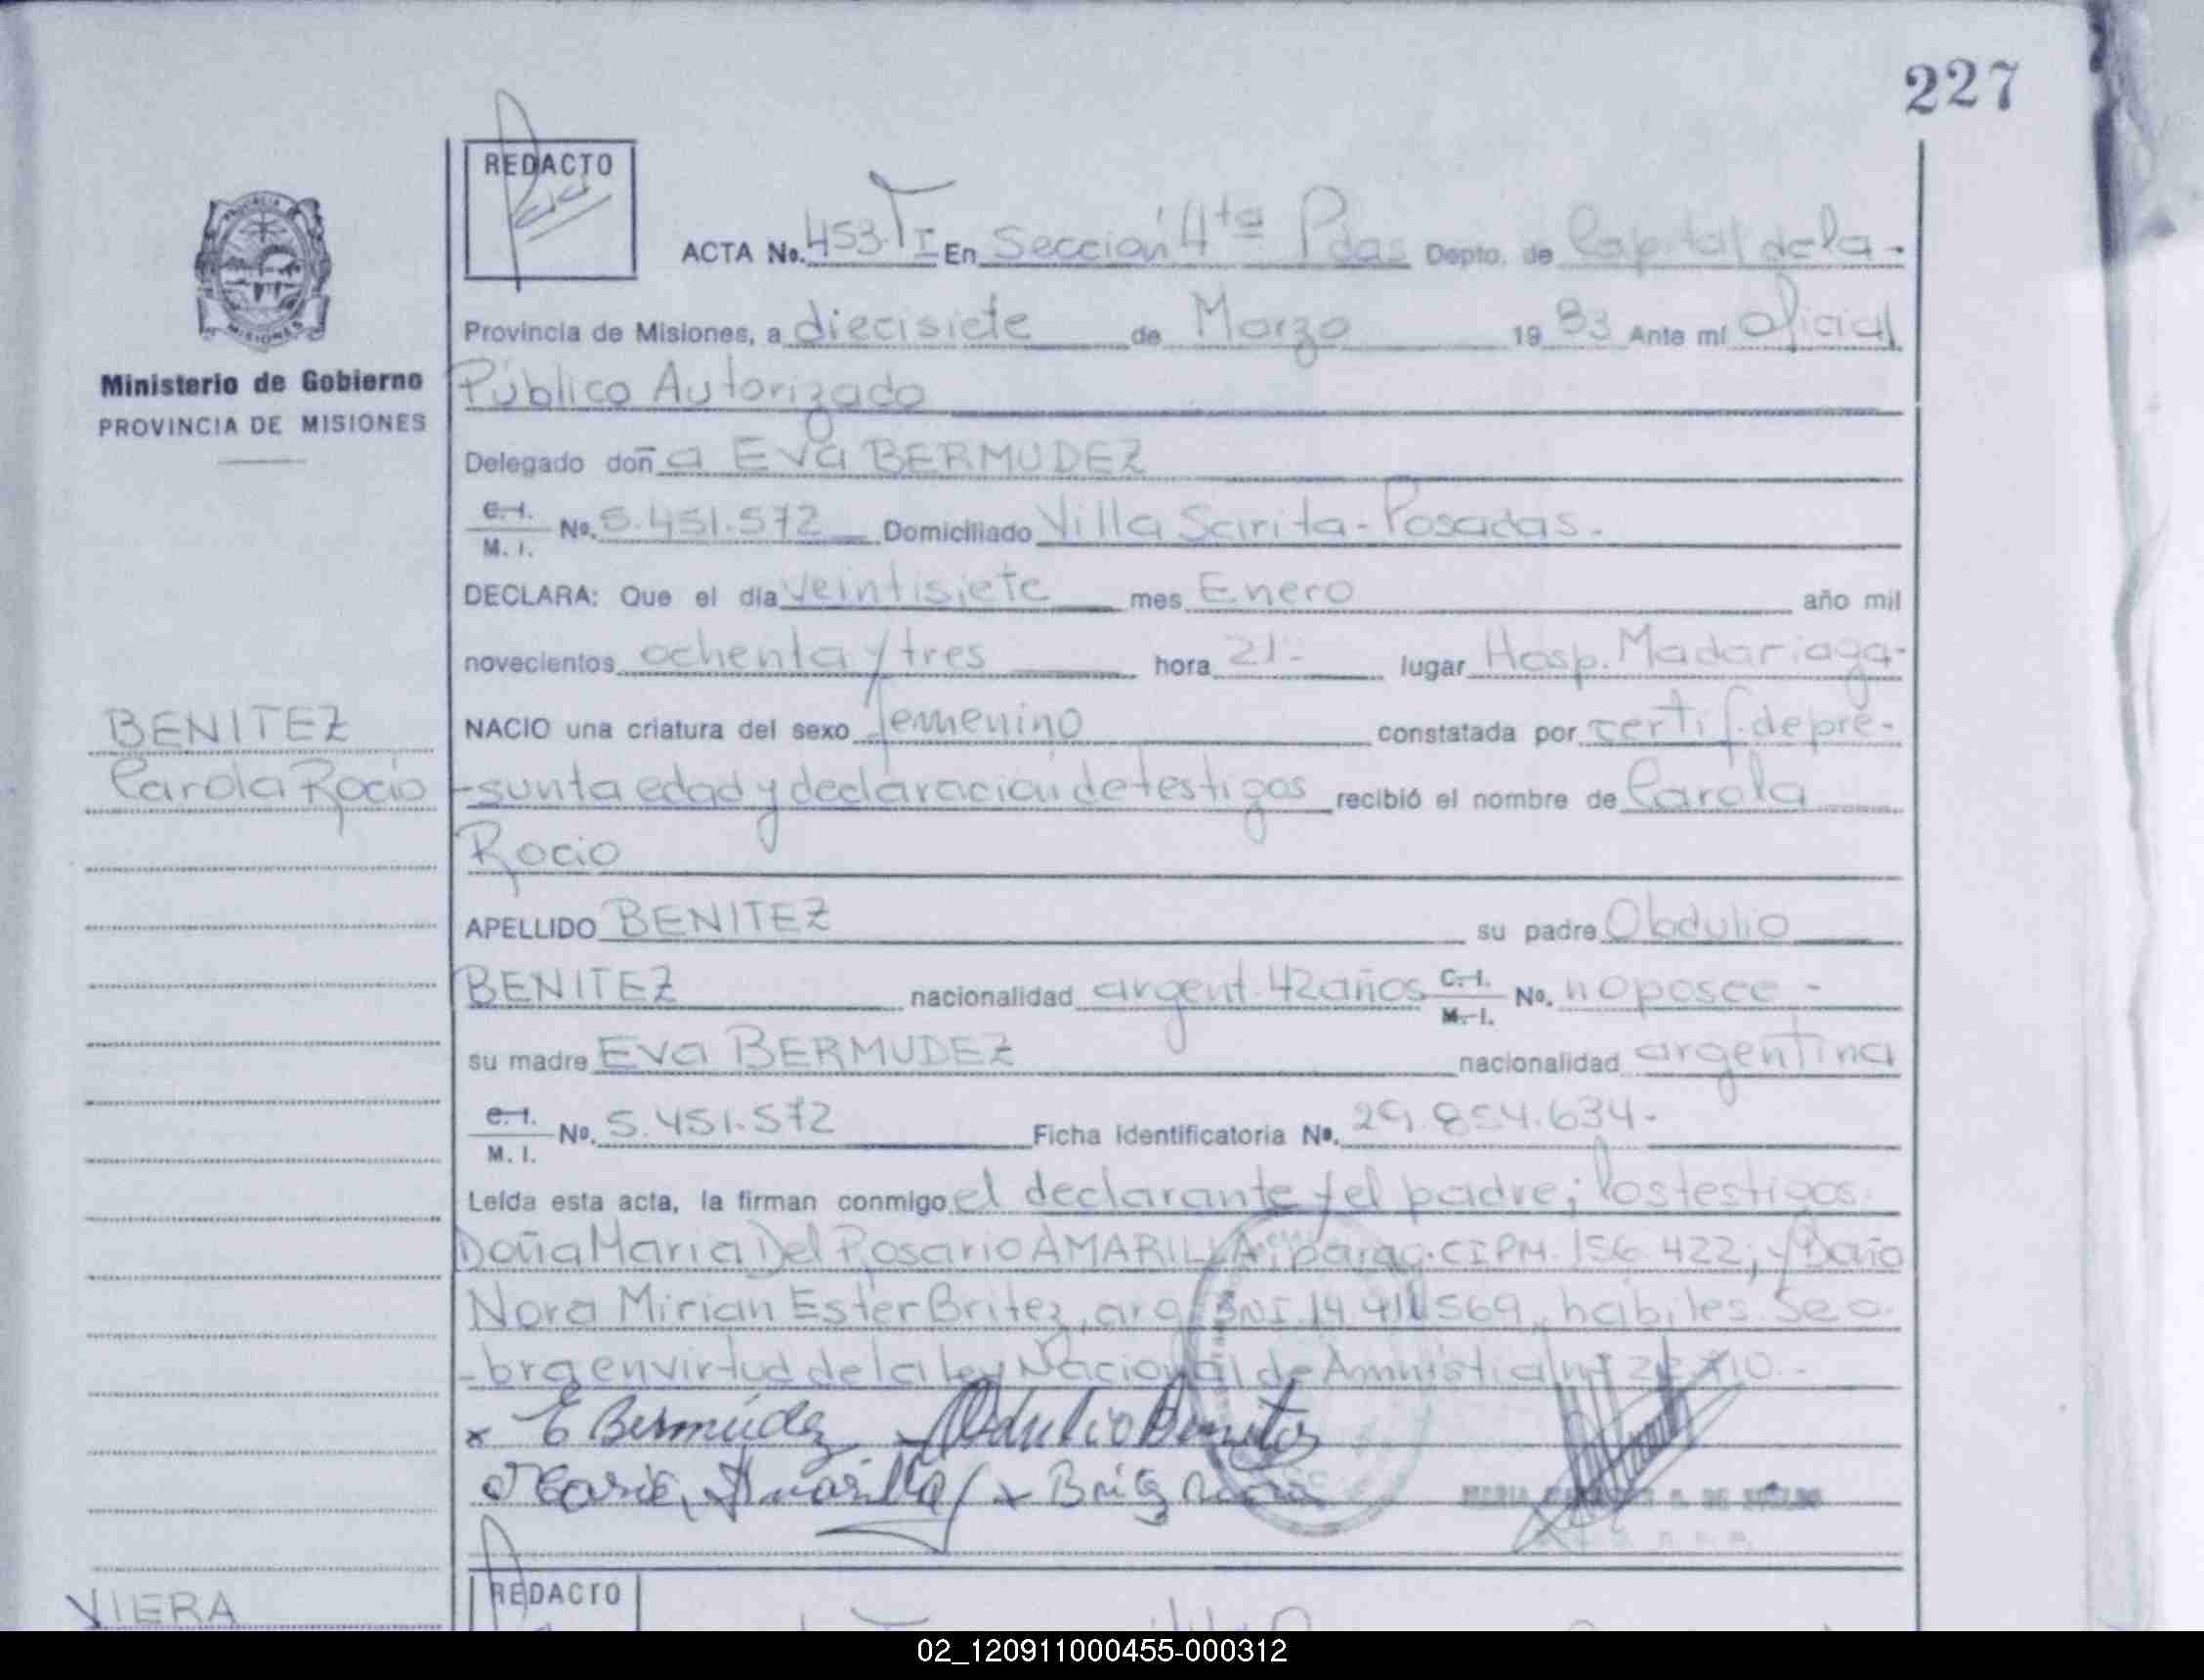 227
REDACTO
ACTA No. 453 T I En Sección 4ta Pdas Depto. de Capital de la -
Provincia de Misiones, a diecisiete de Marzo 19 83 Ante mí Oficial
Público Autorizado
Ministerio de Gobierno
PROVINCIA DE MISIONES
Delegado doñ a Eva BERMUDEZ
C.I. M. I. No. 5.451.572 Domiciliado Villa Sarita - Posadas.
DECLARA: Que el día veintisiete mes Enero año mil
novecientos ochenta y tres hora 21.- lugar Hosp. Madariaga-
NACIO una criatura del sexo femenino constatada por certif. de pre-
-sunta edad y declaración de testigos recibió el nombre de Carola
Rocio
BENITEZ
Carola Rocio
APELLIDO BENITEZ su padre Obdulio
BENITEZ nacionalidad argent. 42 años C.I. M.I. No. no posee -
su madre Eva BERMUDEZ nacionalidad argentina
C.I. M. I. No. 5.451.572 Ficha Identificatoria No. 29.854.634-
Leída esta acta, la firman conmigo el declarante y el padre; los testigos
Doña Maria Del Rosario AMARILLA, parag. CIPM. 156.422; y Doña
Nora Mirian Ester Britez, arg. DNI. 14.411.569, hábiles. Se o-
-bra en virtud de la ley Nacional de Amnistia
x E Bermúdez Obdulio Benitez
Maria Amarilla x Britez Nora
REDACTO
VIERA
02_120911000455-000312